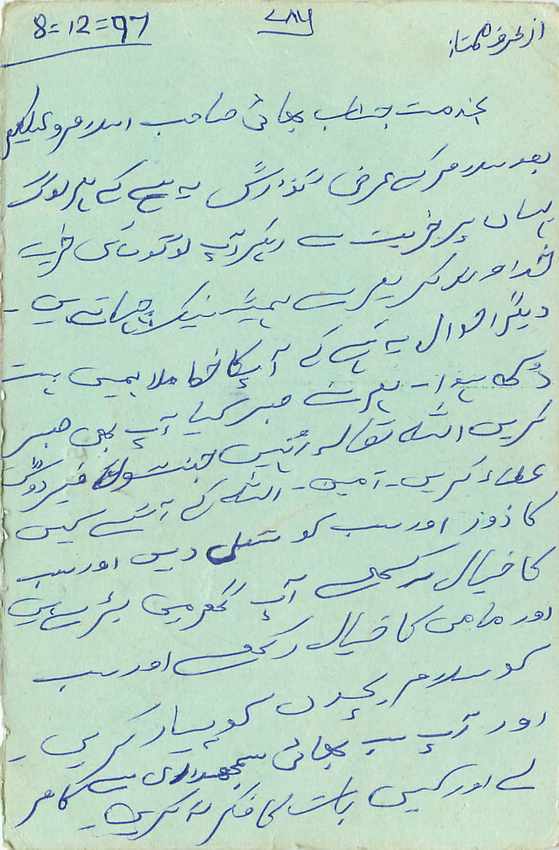 از طرف ممتاز
۷۸۶
8=12=97
بخدمت جناب بھائی صاحب اسلام و علیکم
بعد سلام کے عرض گذارش یہ ہے کے ہم لوگ
یہاں پر خریت سے دیگر آپ لوگوں کی خریت
خداوند کریم سے ہمیشہ نیک چہاتے ہیں -
دیگر احوال یہ ہے کے آپکا خط ملا ہمیں بہت
دُکھ ہوا - ہم نے صبر کیا آپ بھی صبر
کریں اللہ تعالہ اُنہیں جنتول فیردوس
عطاء کریں - آمین - اللہ کے آگے کسی
کا ذور اور سب کو تسلی دیں اور سب
کا خیال رکھیں آپ گھر میں بڑے ہیں
اور مامی کا خیال رکھے اور سب
کو سلام بچوں کو پیار کریں -
اور آپ سب بھائی سمجھداری سے کام
لے اور کسی بات کا فکر نہ کریں